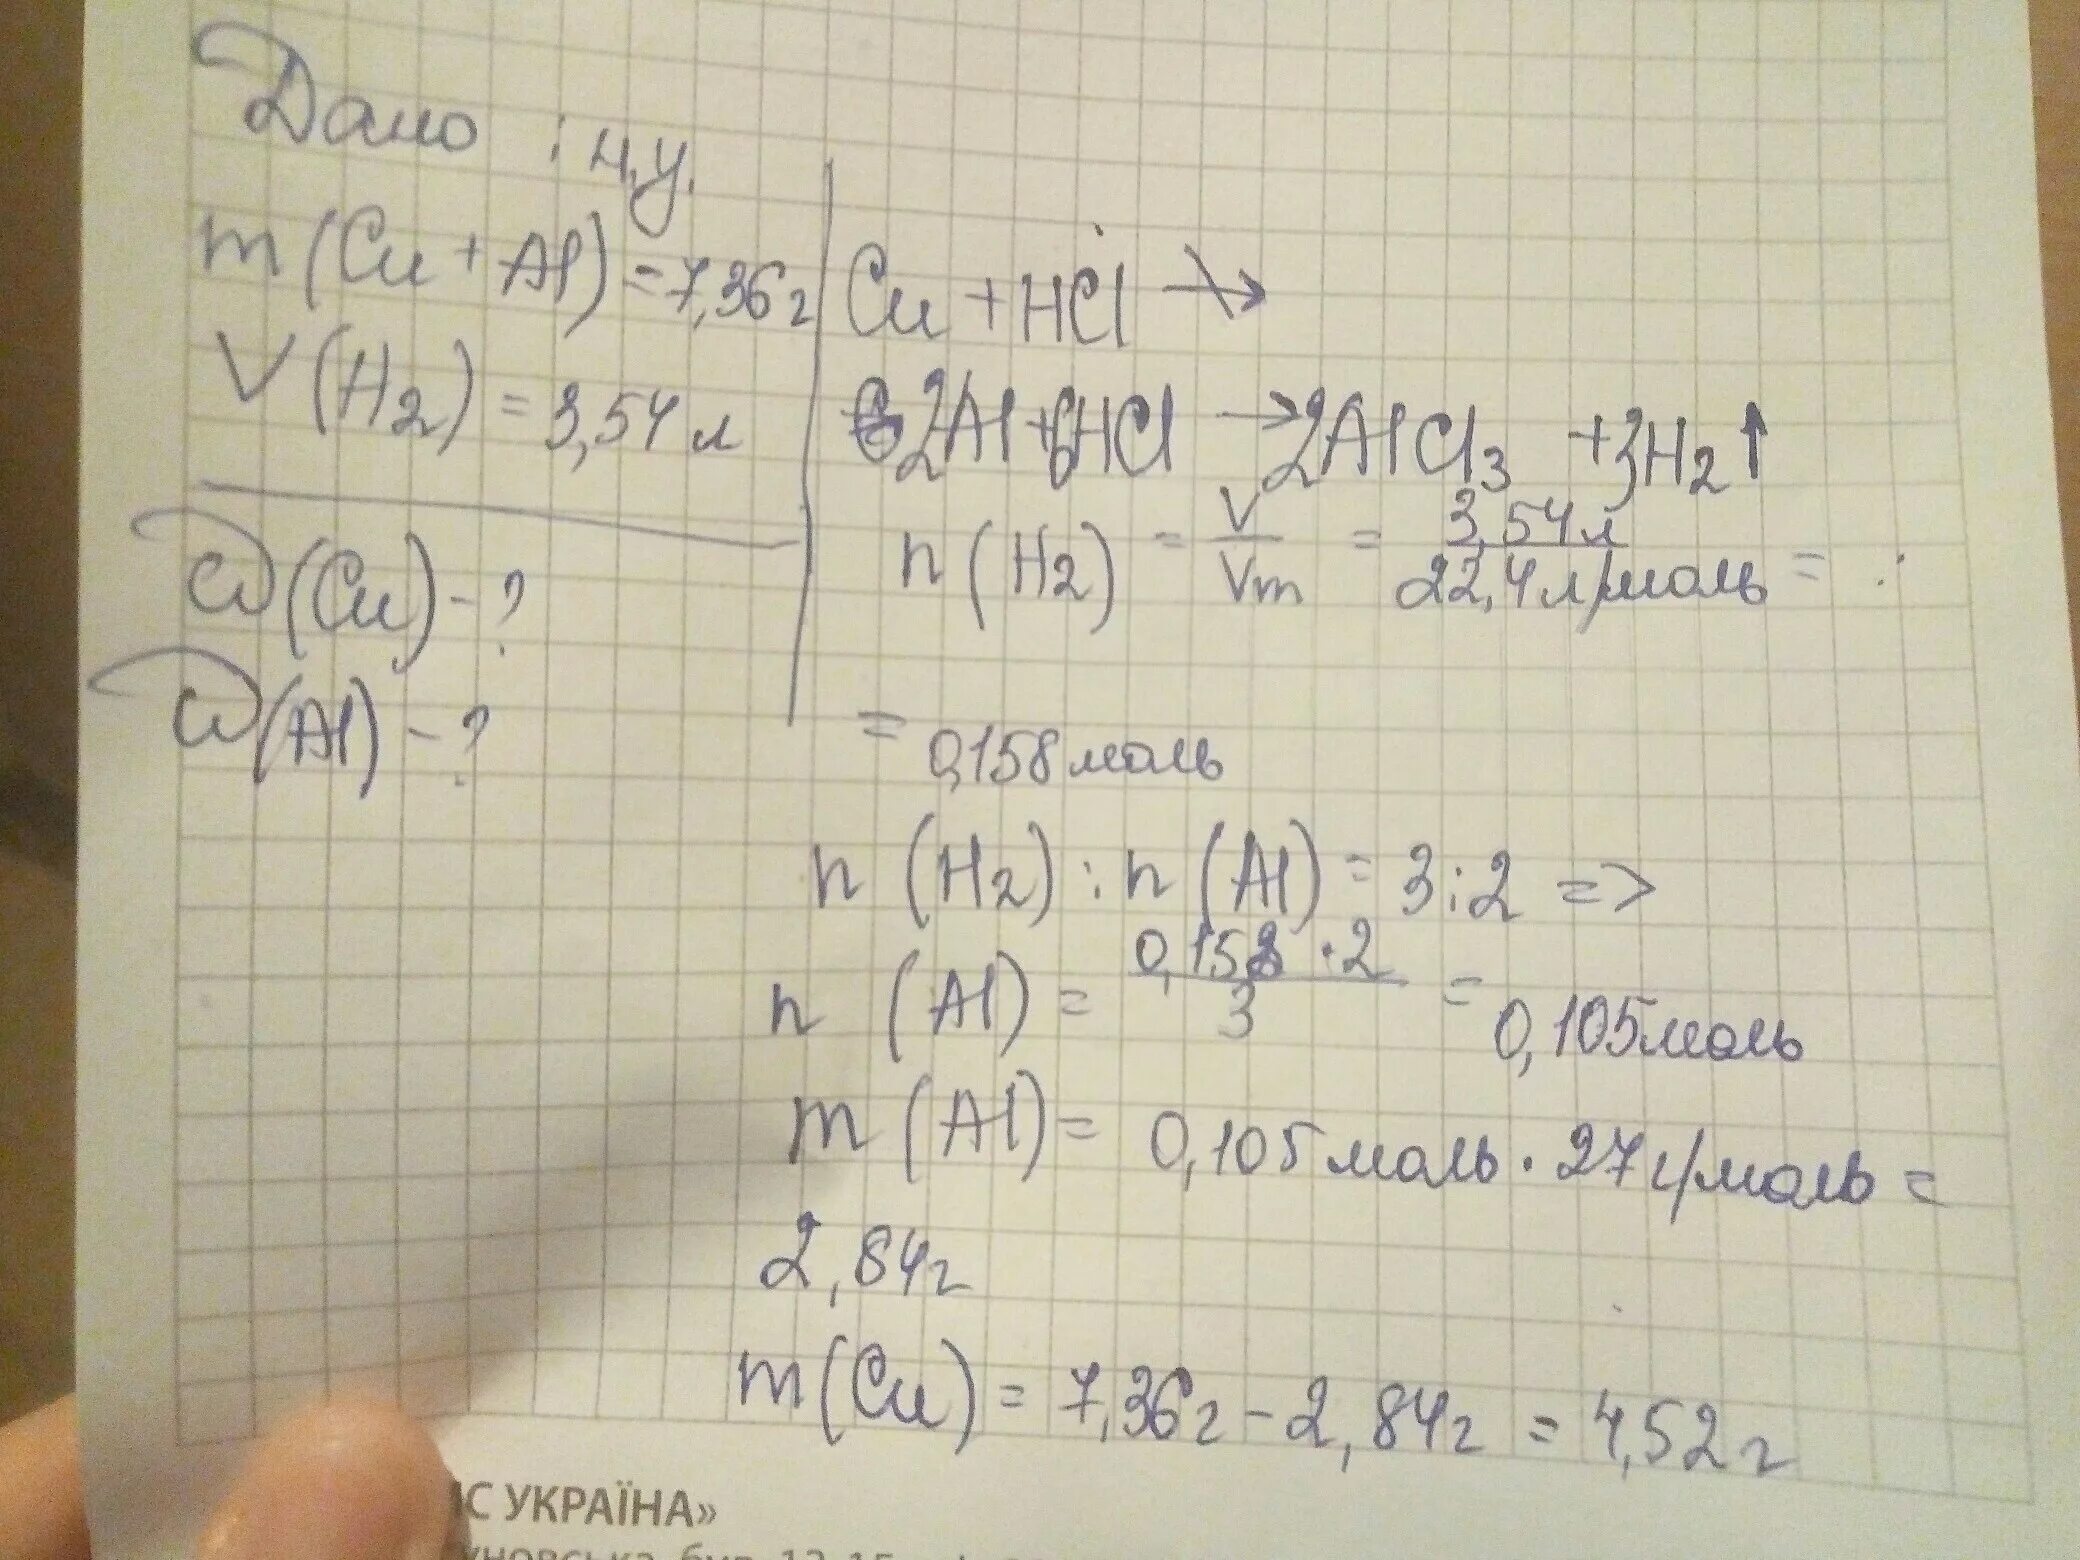 Дано : н.у.
m (Cu + Al) = 7,36 г
V (H2) = 3,54 л
ω (Cu) - ?
ω (Al) - ?
Cu + HCl
2Al + 6HCl → 2AlCl3 + 3H2↑
n (H2) = V/Vm = 3,54 л/22,4 л/моль =
= 0,158 моль
n (H2) : n (Al) = 3:2 =>
n (Al) = 0,158 · 2/3 = 0,105 моль
m (Al) = 0,105 моль · 27 г/моль =
2,84 г
m (Cu) = 7,36 г - 2,84 г = 4,52 г
ІС УКРАЇНА»